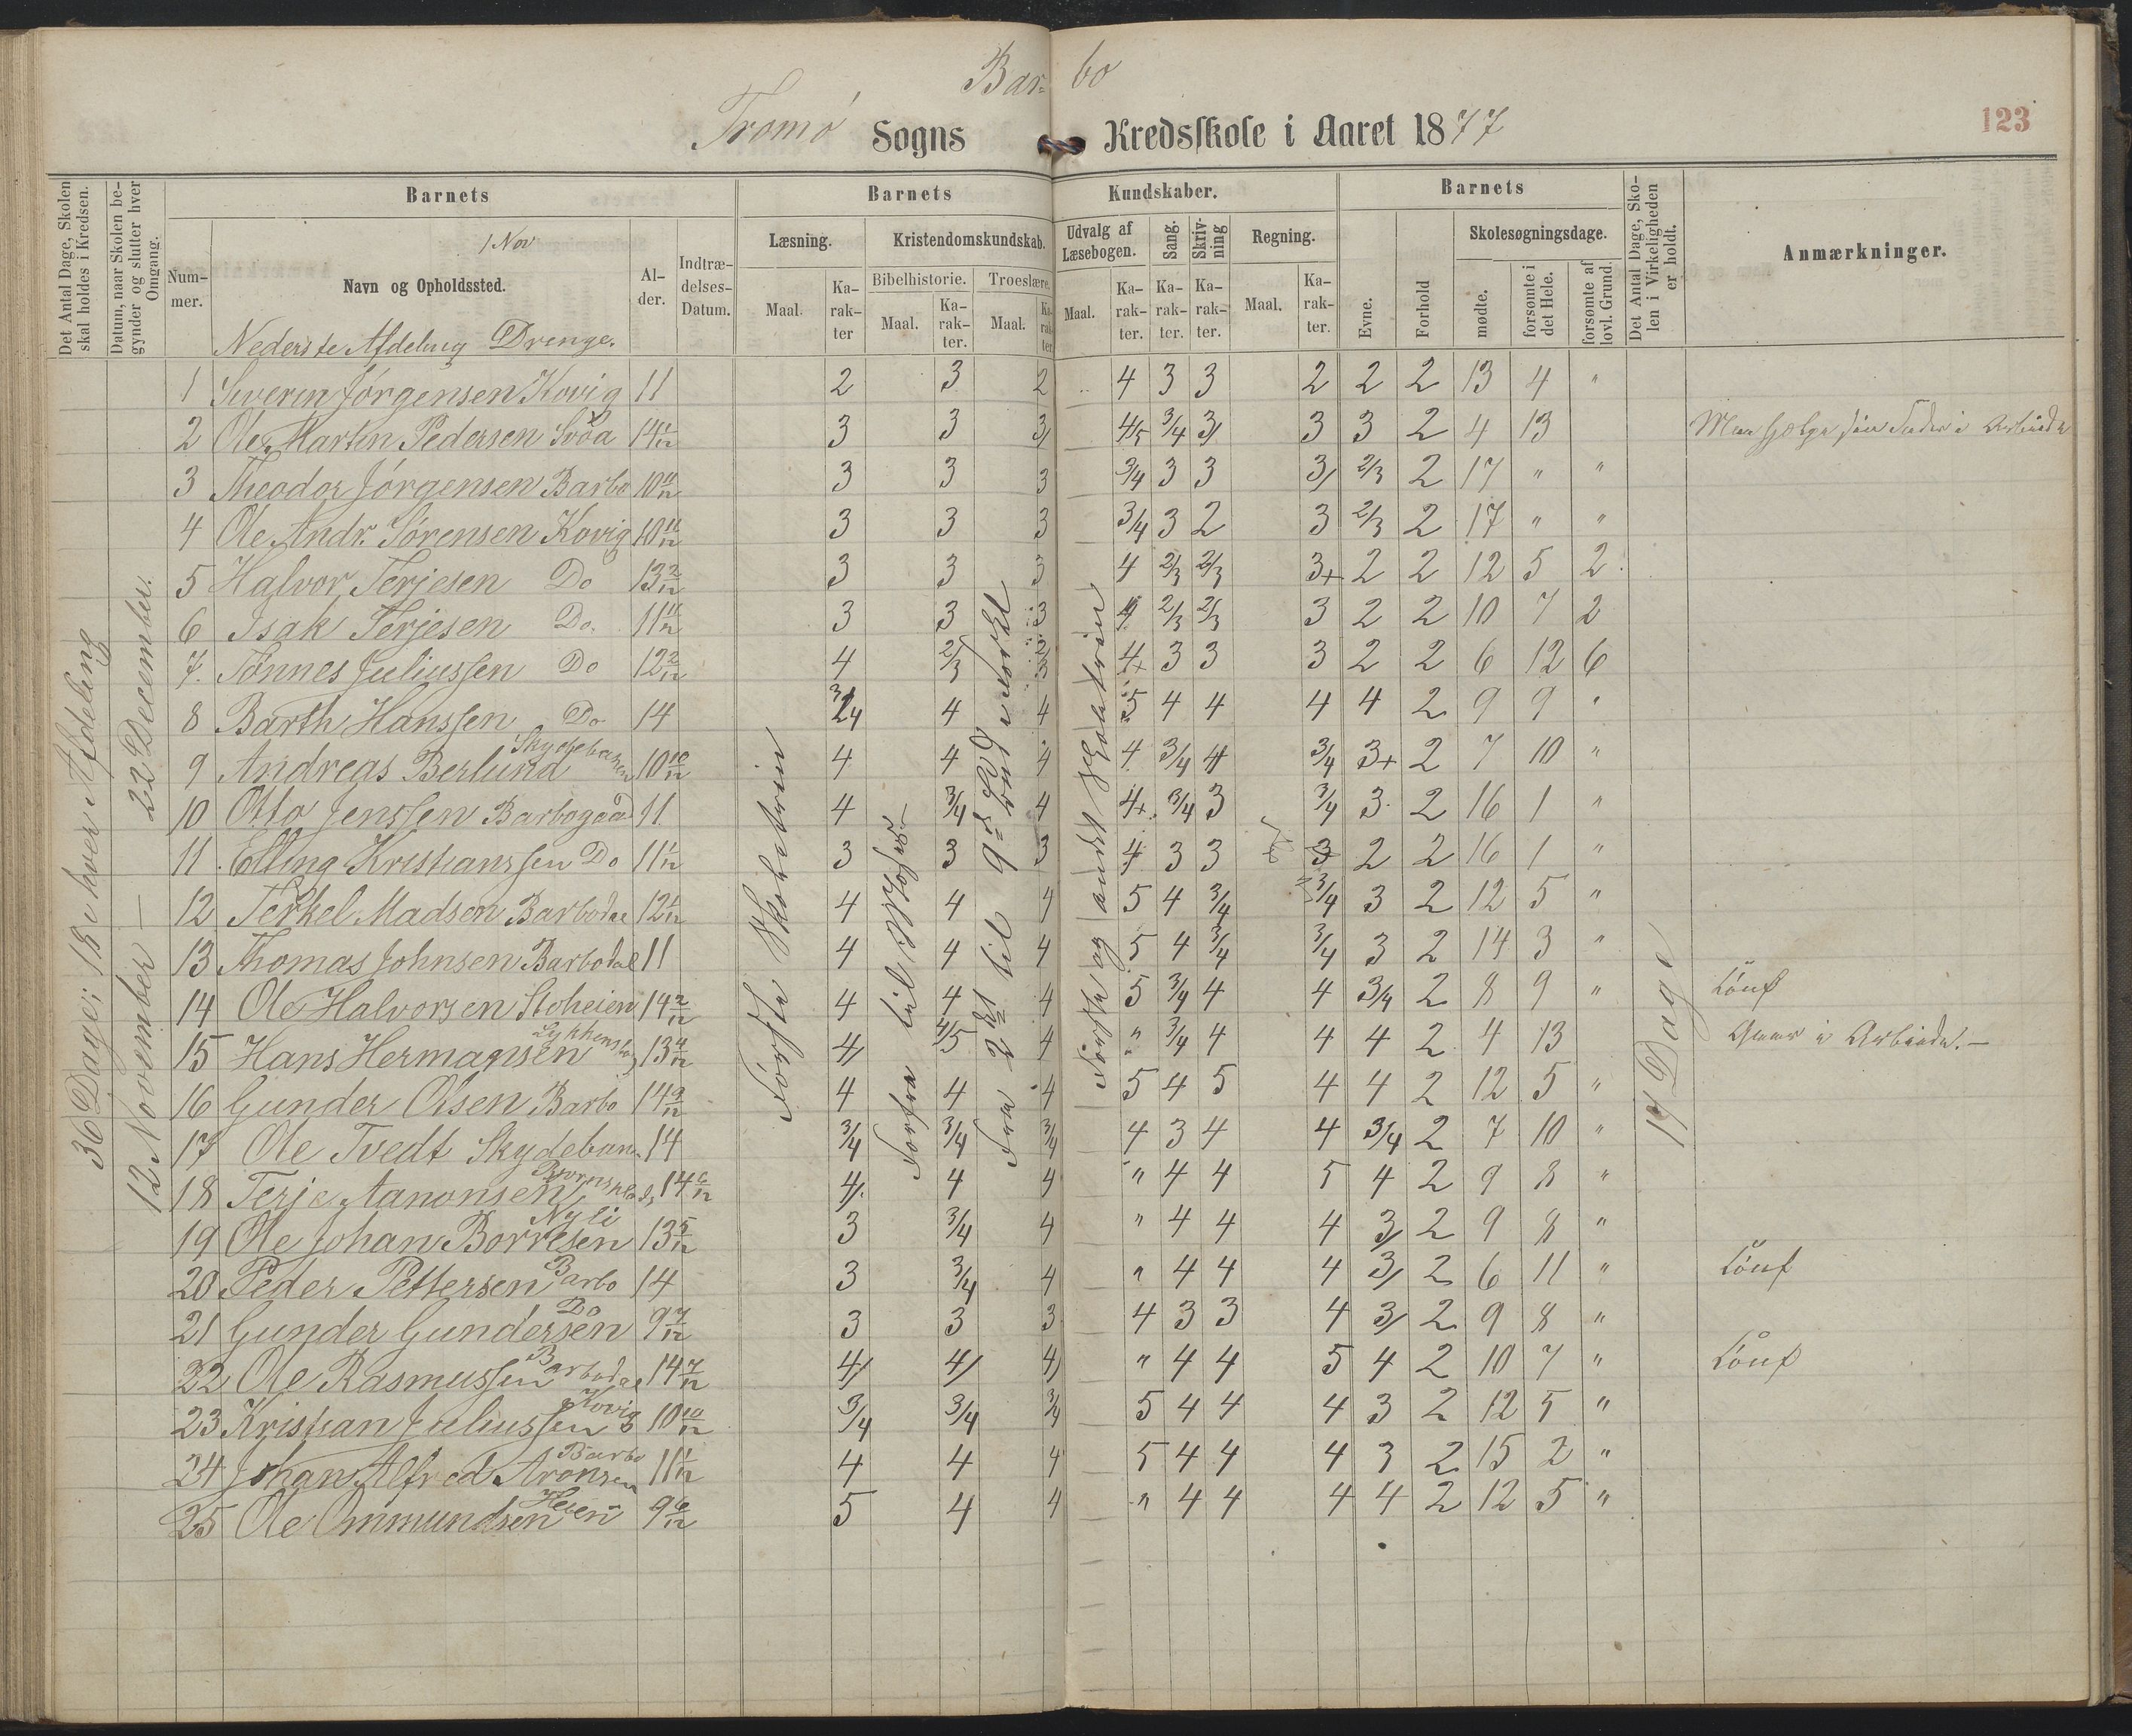 Bar- bo
Tromö Sogns Kredsskole i Aaret 1877
123
Det Antal Dage, Skolen skal holdes i Kredsen.
Datum, naar Skolen begynder og slutter hver Omgang.
Barnets
Barnets Kundskaber.
Barnets
Det Antal Dage, Skolen i Virkeligheden er holdt.
Anmærkninger.
Nummer.
1 Nov
Navn og Opholdssted.
Alder.
Indtrædelses-Datum.
Læsning.
Kristendomskundskab.
Udvalg af Læsebogen.
Sang.
Skrivning
Regning.
Skolesøgningsdage.
Bibelhistorie.
Troeslære.
Maal. Karakter
Maal. Karakter.
Maal. Karakter.
Maal. Karakter.
Karakter.
Karakter.
Maal. Karakter.
Evne.
Forhold
mødte.
forsømte i det Hele.
forsømte af lovl. Grund.
Nederste Afdeling Drenge.
36 Dage: 18 i hver Afdeling
12 November – 22 December.
Første Skoletrin
Forfra til
Fra 2det til 9de Bud
Første og andet Skoletrin
14 Dage
1 Severin Jörgensen Kovig 11 2 3 2 4 3 3 2 2 2 13 4 "
2 Ole Martin Pedersen Svöa 14 1/12 3 3 3/ 4/5 3/4 3/ 3 3 2 4 13
3 Theodor Jörgensen Barbo 10 11/12 3 3 3 3/4 3 3 3/ 2/3 2 17 " "
4 Ole Andr. Sörensen Kovig 10 11/12 3 3 3 3/4 3 2 3 2/3 2 17 " "
5 Halvor Terjesen Do 13 2/12 3 3 3 4 2/3 2/3 3+ 2 2 12 5 2
6 Isak Terjesen Do. 11 11/12 3 3 3 4 2/3 2/3 3 2 2 10 7 2
7. Tönnes Juliussen Do 12 2/12 4 2/3 2/3 4+ 3 3 3 2 2 6 12 6
8 Barth Hanssen Do 14 3/4 4 4 5 4 4 4 4 2 9 9 "
9 Andreas Berlund Skydebanen 10 10/12 4 4 4 4 3/4 4 3/4 3+ 2 7 10 "
10 Otto Jenssen Barbogaad 11 4 3/4 4 4+ 3/4 3 3/4 3 2 16 1 "
11. Elling Kristianssen Do 11 1/12 3 3 3 4 3 3 3 2 2 16 1 "
12 Terkel Madsen Barbodal 12 1/12 4 4 4 5 4 3/4 3/4 3 2 12 5 "
13 Thomas Johnsen Barbodal 11 4 4 4 5 4 3/4 3/4 3 2 14 3 "
14 Ole Halvorsen Stoheien 14 2/12 4 4 4 5 3/4 4 4 3/4 2 8 9 "
15 Hans Hermansen 13 4/12 4/ 4/5 4 " 3/4 4 4 4 2 4 13 i Arbeide. –
16 Gunder Olsen Barbo 14 9/12 4 4 4 5 4 5 4 4 2 12 5 "
17 Ole Tvedt Skydeban. 14 3/4 3/4 3/4 4 3 4 4 3/4 2 7 10 "
18 Terje Aanonsen 14 6/12 4/. 4 4 " 4 4 5 4 2 9 8 "
19 Ole Johan Börresen Nyli 13 5/12 3 3/4 4 " 4 4 4 3/ 2 9 8 "
20 Peder Pettersen Barbo 14 3 3/4 4 " 4 4 4 3/ 2 6 11 "
21 Gunder Gundersen Do 9 7/12 3 3 3 4 3 3 4 3/ 2 9 8 "
22 Ole Rasmussen Barbodal 14 7/12 4/ 4/ 4/ " 4 4 5 4 2 10 7 "
23 Kristian Juliussen Kovig 10 10/12 3/4 3/4 3/4 5 4 4 4 3 2 12 5 "
24 Johan Alfred Aronsen Barbo 11 1/12 4 4 4 5 4 4 4 3 2 15 2 "
25 Ole Ommundsen Heien 9 6/12 5 4 4 " 4 4 4 4 2 12 5 "